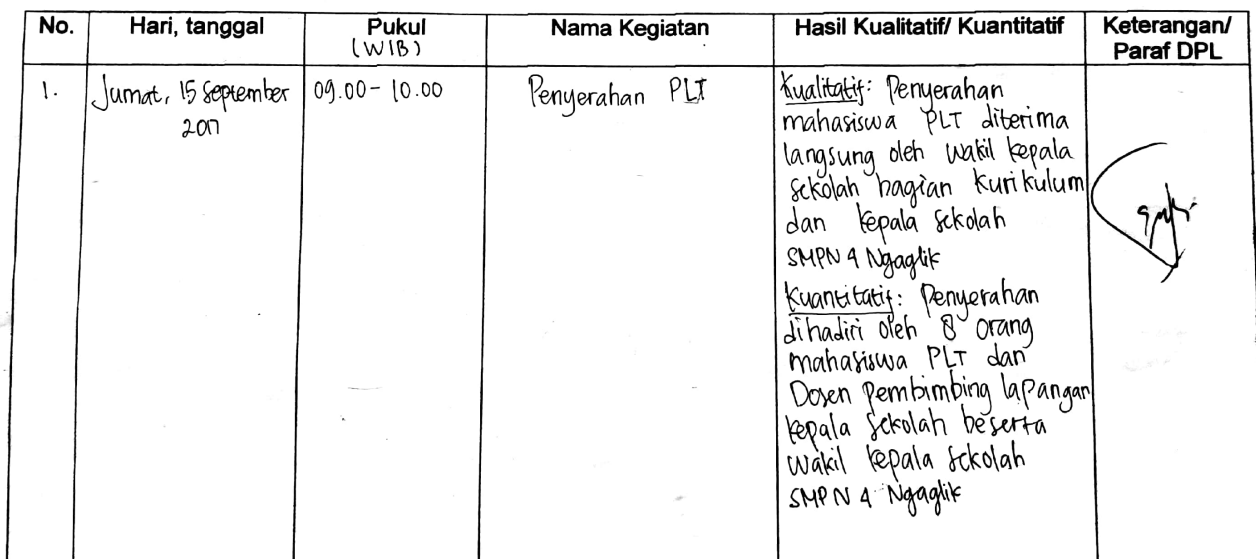 No. Hari, tanggal Pukul Nama Kegiatan Hasil Kualitatif/ Kuantitatif Keterangan/
(WIB) Paraf DPL
1. Jumat, 15 September 09.00 - 10.00 Penyerahan PLT Kualitatif: Penyerahan
2017 mahasiswa PLT diterima
langsung oleh wakil kepala
sekolah bagian kurikulum
dan kepala sekolah
SMPN 4 Ngaglik
Kuantitatif: Penyerahan
dihadiri oleh 8 orang
mahasiswa PLT dan
Dosen Pembimbing lapangan
kepala sekolah beserta
wakil kepala sekolah
SMPN 4 Ngaglik